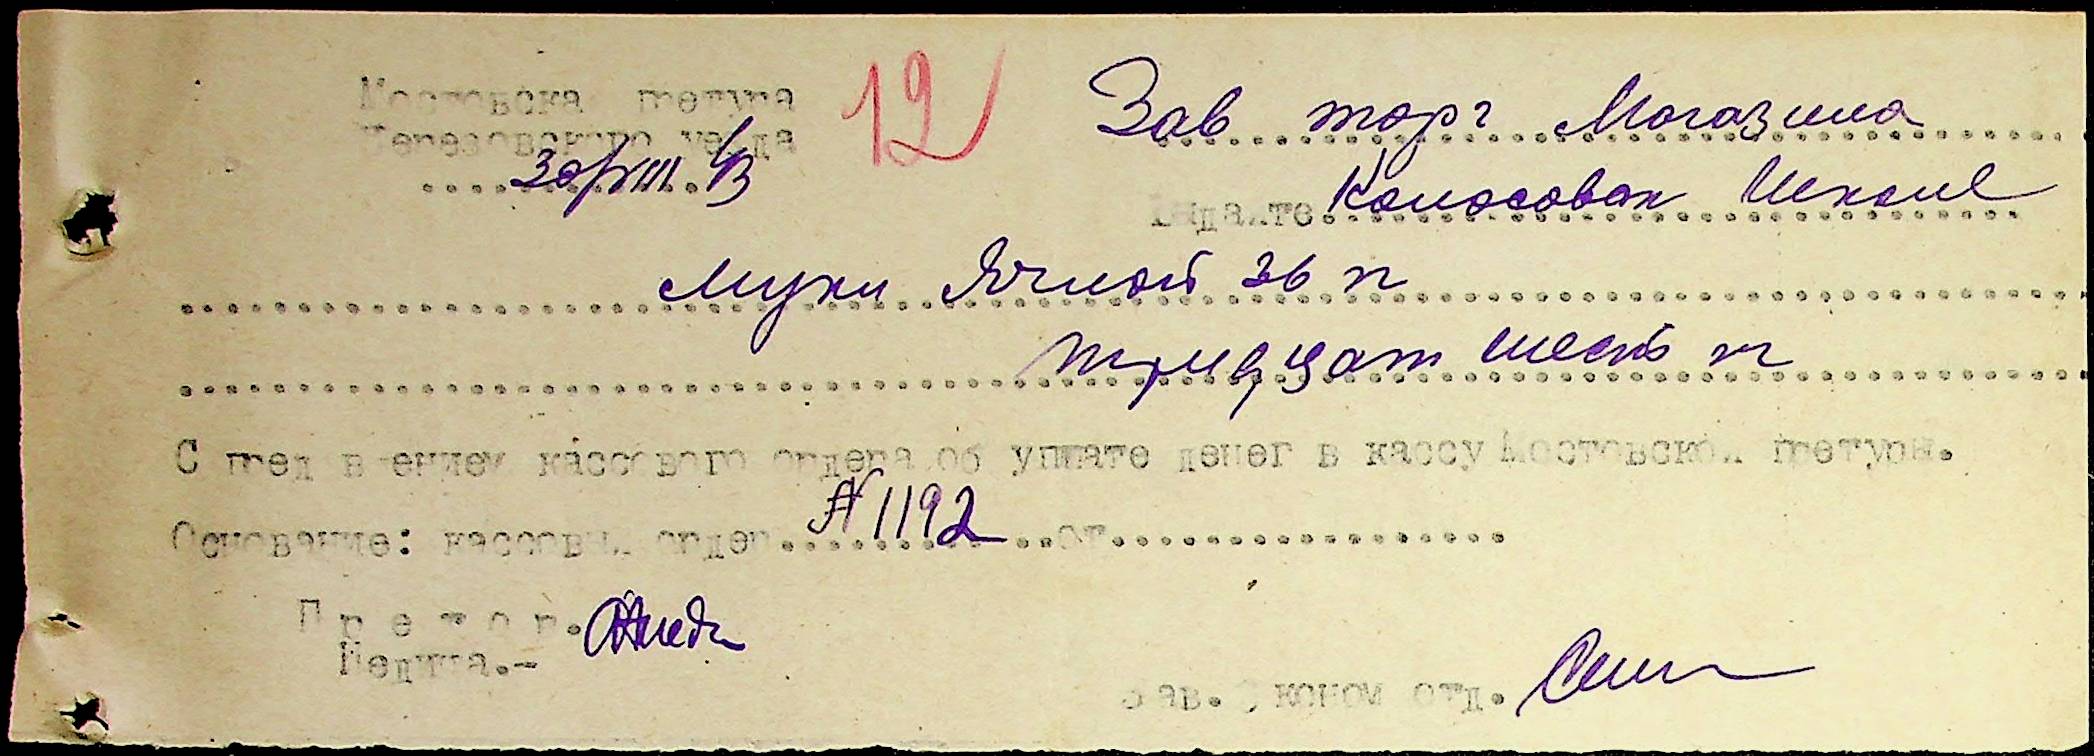 Мостовска претура
Березовского уезда
30/VIII 43
12
Зав торг Магазина
Выдайте Колосовак Школе
Муки Ячной 36 п
тридцат шесть п
С пред в ением кассового ордера об уплате денег в кассу Мостовской претуры.
Основание: кассовый ордер N 1192 от
Претор.
Зав. Эконом отд.